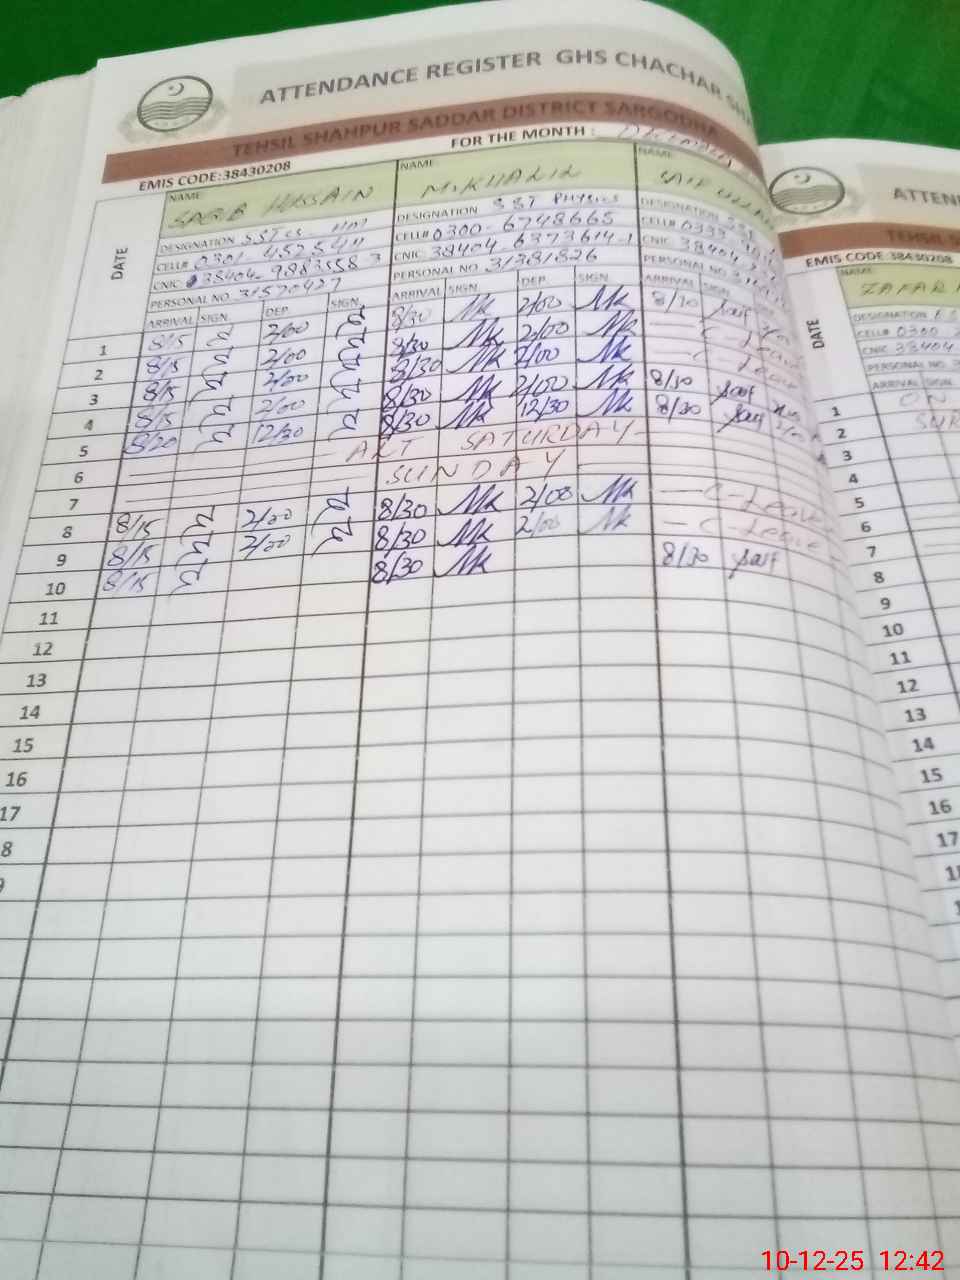 ATTENDANCE REGISTER GHS CHACHAR
TEHSIL SHAHPUR SADDAR DISTRICT SARGODHA
EMIS CODE:38430208 FOR THE MONTH : December
DATE NAME NAME NAME
SABIR HUSSAIN M.KHALIL SAIF
DESIGNATION SST DESIGNATION SST Physics DESIGNATION
CELL# 0301-4525411 CELL# 0300-6748665 CELL# 0333
CNIC 38404-9883558 3 CNIC 38404 6373614-1 CNIC 38404
PERSONAL NO. 31570427 PERSONAL NO 31381826 PERSONAL NO
ARRIVAL SIGN. DEP. SIGN. ARRIVAL SIGN. DEP. SIGN. ARRIVAL SIGN.
1 8/15 2/00 8/30 Mk 2/00 Mk 8/30 Saif
2 8/15 2/00 8/30 Mk 2/00 Mk — C-Leave
3 8/15 2/00 8/30 Mk 2/00 Mk — C Leave
4 8/15 2/00 8/30 Mk 2/00 Mk 8/30 Saif
5 8/20 12/30 8/30 Mk 12/30 Mk 8/30 Saif
6 SATURDAY
7 SUNDAY
8 8/15 2/00 8/30 Mk 2/00 Mk — C-Leave
9 8/15 2/00 8/30 Mk 2/00 Mk — C Leave
10 8/15 8/30 Mk 8/30 Saif
11
12
13
14
15
16
17
8
9
ATTEN
TEHSIL S
EMIS CODE 38430208
DATE NAME
ZAFAR
DESIGNATION
CELL# 0300
CNIC 38404
PERSONAL NO.
ARRIVAL SIGN.
1 ON
2
3
4
5
6
7
8
9
10
11
12
13
14
15
16
17
10-12-25 12:42